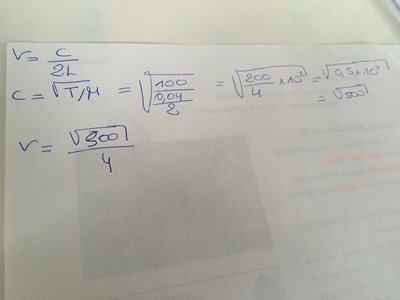 v = c/2L
c = √T/μ = √(100/(0,04/2)) = √(200/4 × 10²) = √0,5 × 10⁴
= √500
v = √500/4